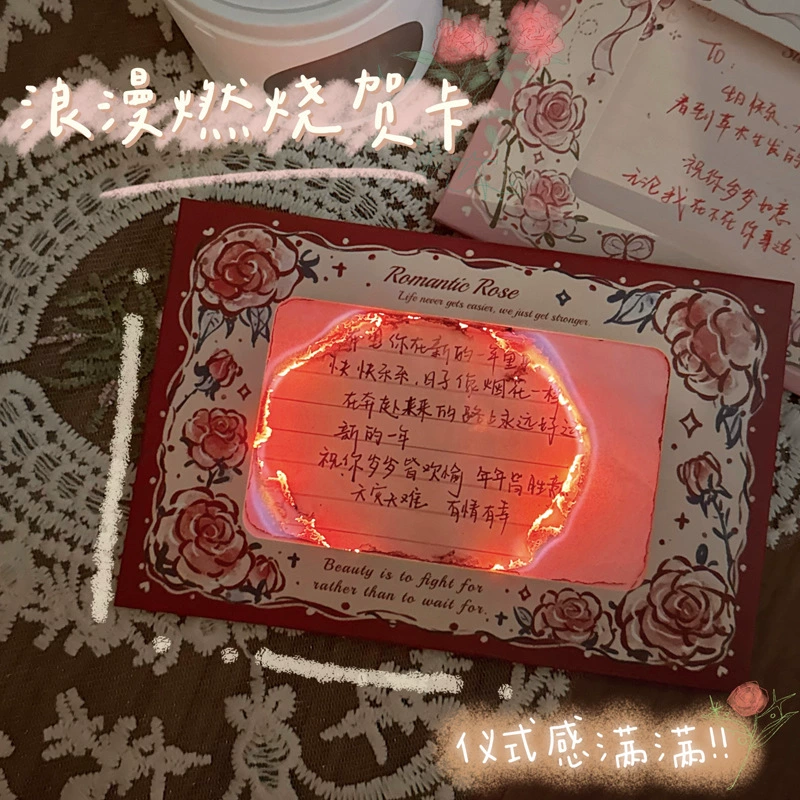 浪漫燃烧贺卡
TO:
生日快乐
看到草木生发的
祝你岁岁如意
无论我在不在你身边
Romantic Rose
Life never gets easier, we just get stronger.
你在新的一年里
快快乐乐,日子像烟花一样
在奔赴未来的路上永远好运
新的一年
祝你岁岁皆欢愉 年年皆胜意
无灾无难 有情有幸
Beauty is to fight for
rather than to wait for.
仪式感满满!!